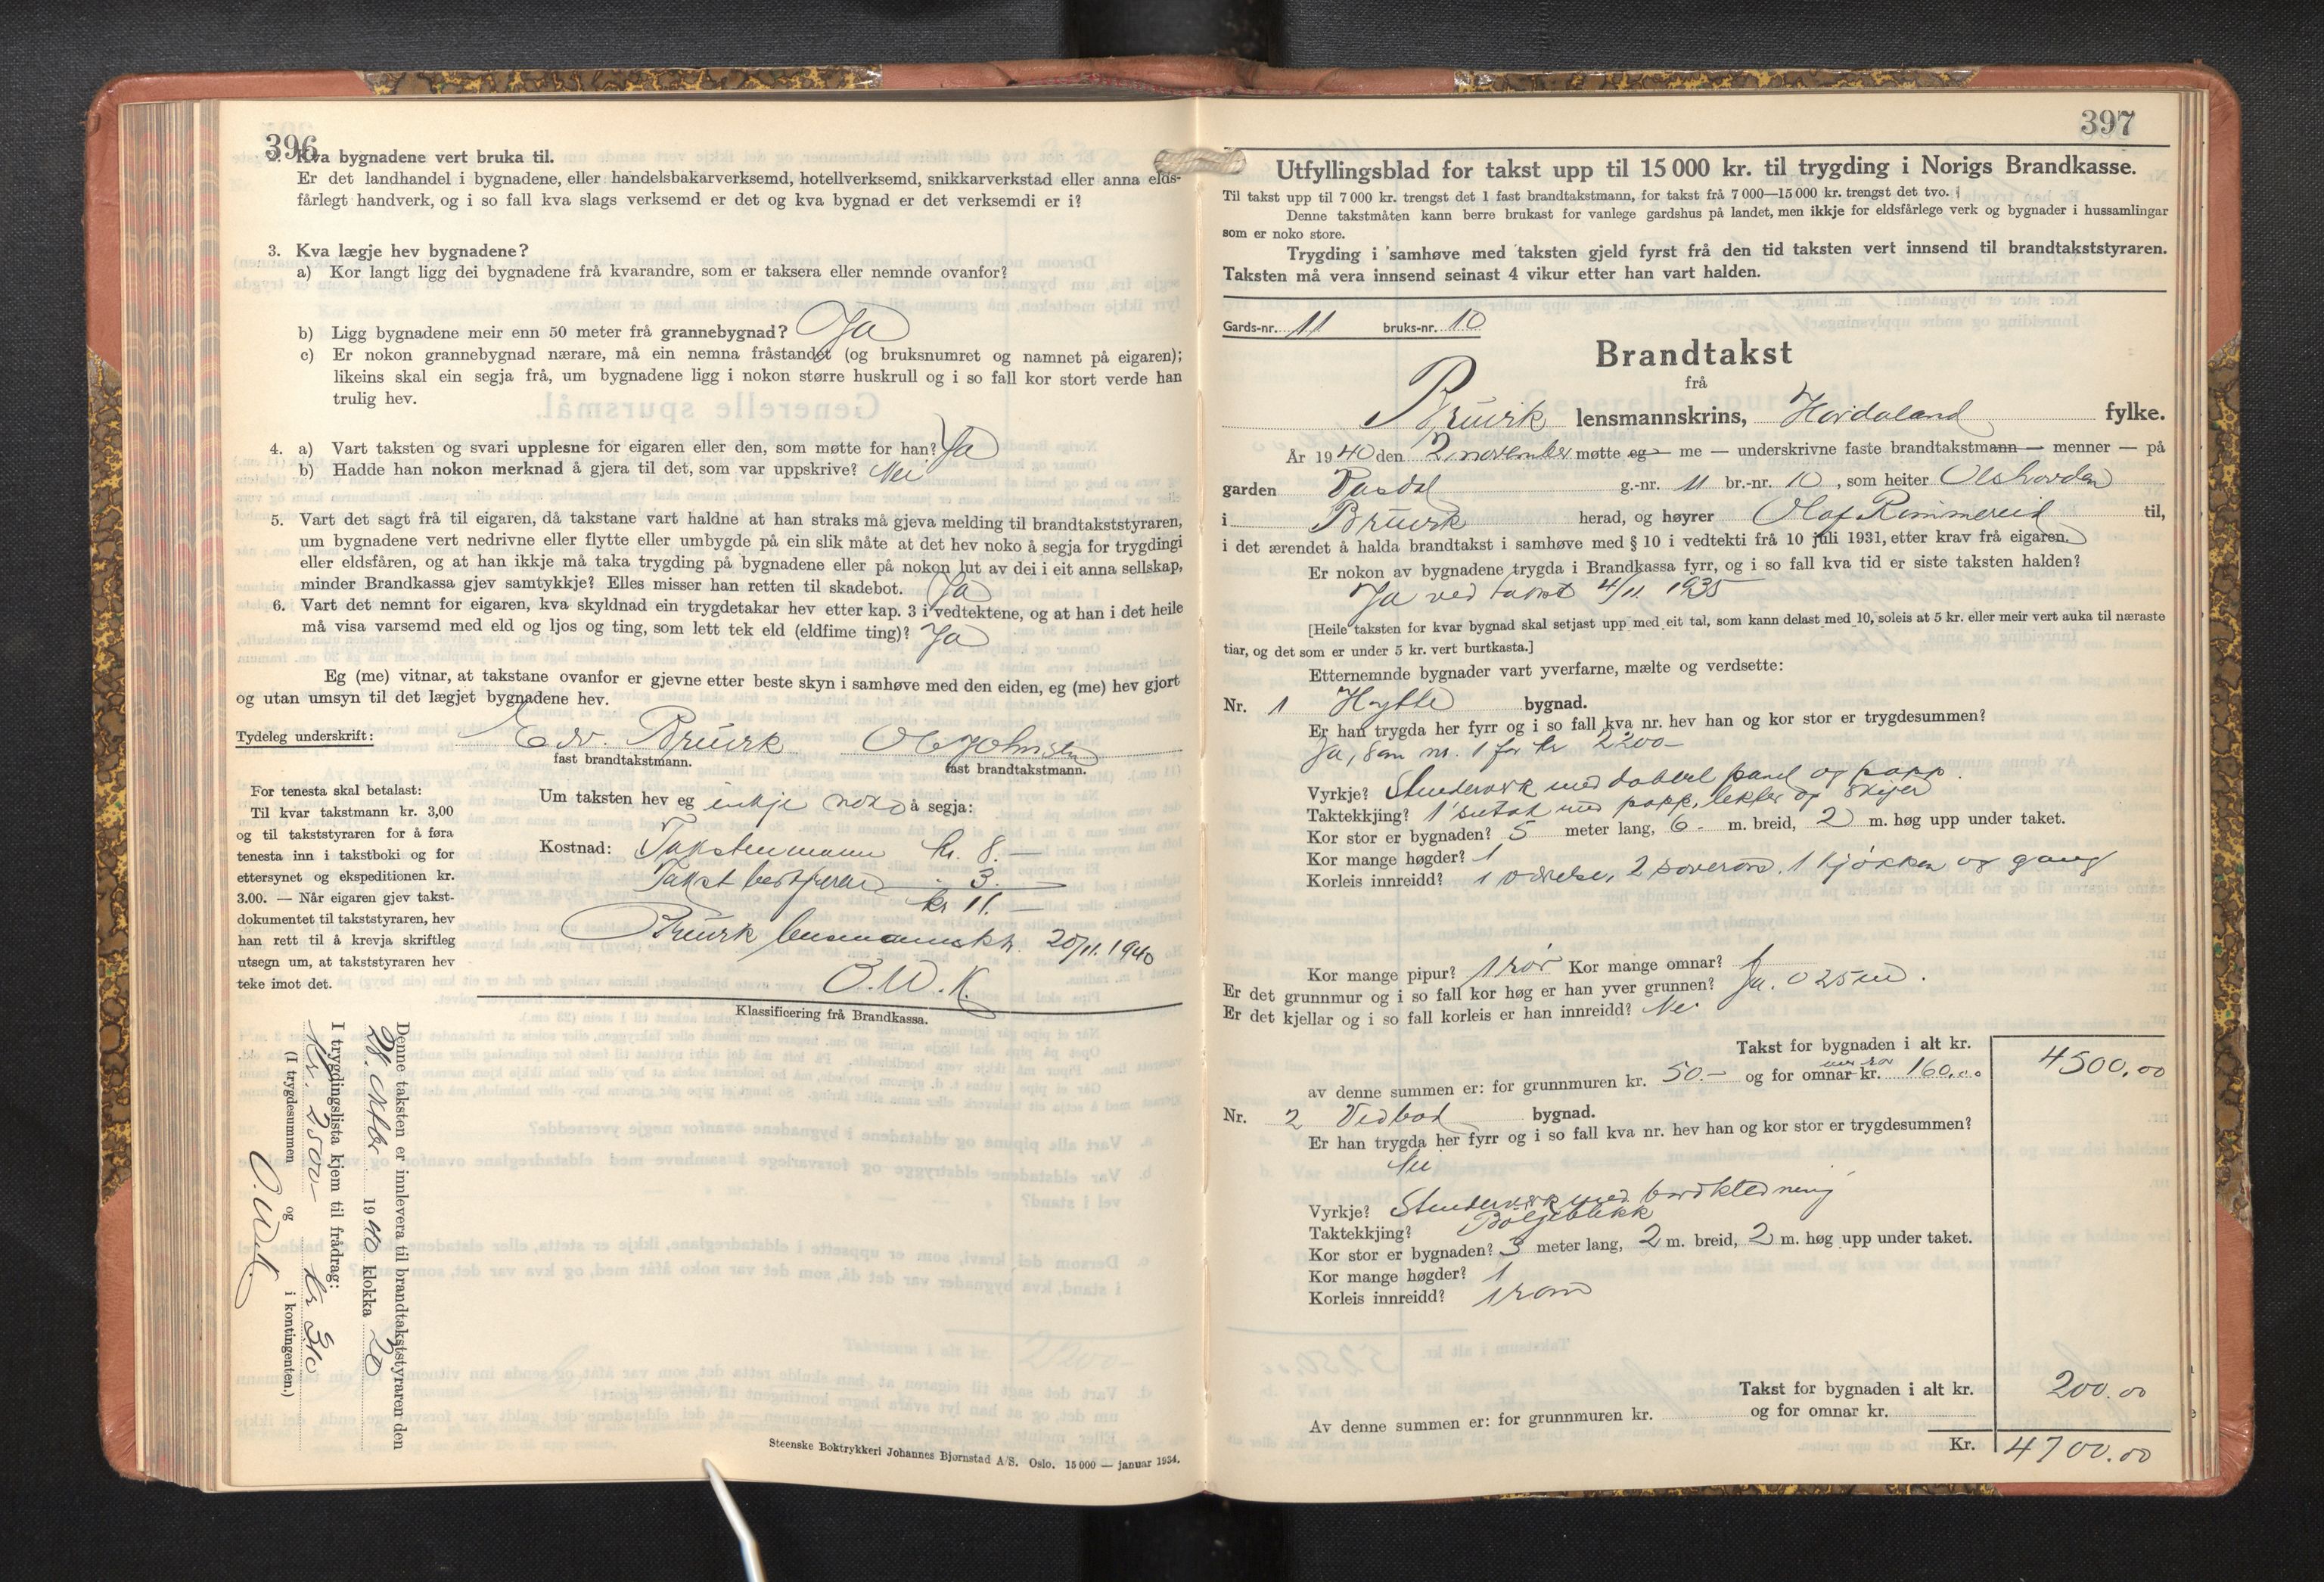 396
2. Kva bygnadene vert bruka til.
Er det landhandel i bygnadene, eller handelsbakarverksemd, hotellverksemd, snikkarverkstad eller anna elds-
fårlegt handverk, og i so fall kva slags verksemd er det og kva bygnad er det verksemdi er i?
3. Kva lægje hev bygnadene?
a) Kor langt ligg dei bygnadene frå kvarandre, som er taksera eller nemnde ovanfor?
b) Ligg bygnadene meir enn 50 meter frå grannebygnad? Ja
c) Er nokon grannebygnad nærare, må ein nemna fråstandet (og bruksnumret og namnet på eigaren);
likeins skal ein segja frå, um bygnadene ligg i nokon større huskrull og i so fall kor stort verde han
trulig hev.
4. a) Vart taksten og svari upplesne for eigaren eller den, som møtte for han? Ja
b) Hadde han nokon merknad å gjera til det, som var uppskrive? Nei
5. Vart det sagt frå til eigaren, då takstane vart haldne at han straks må gjeva melding til brandtakststyraren,
um bygnadene vert nedrivne eller flytte eller umbygde på ein slik måte at det hev noko å segja for trygdingi
eller eldsfåren, og at han ikkje må taka trygding på bygnadene eller på nokon lut av dei i eit anna sellskap,
minder Brandkassa gjev samtykkje? Elles misser han retten til skadebot. Ja
6. Vart det nemnt for eigaren, kva skyldnad ein trygdetakar hev etter kap. 3 i vedtektene, og at han i det heile
må visa varsemd med eld og ljos og ting, som lett tek eld (eldfime ting)? Ja
Eg (me) vitnar, at takstane ovanfor er gjevne etter beste skyn i samhøve med den eiden, eg (me) hev gjort
og utan umsyn til det lægjet bygnadene hev.
Tydeleg underskrift: Edv. Bruvik Ole Johnsen
fast brandtakstmann. fast brandtakstmann.
For tenesta skal betalast:
Til kvar takstmann kr. 3,00
og til takststyraren for å føra
tenesta inn i takstboki og for
ettersynet og ekspeditionen kr.
3.00. — Når eigaren gjev takst-
dokumentet til takststyraren, hev
han rett til å krevja skriftleg
utsegn um, at takststyraren hev
teke imot det.
Um taksten hev eg inkje noko å segja:
Kostnad: Takstenmann kr. 8.—
Takstbestyrar - 3.
kr 11.—
Bruvik lensmannsktr. 20/11. 1940
O.W.K.
Klassificering frå Brandkassa.
Denne taksten er innlevera til brandtakststyraren den
28. oktbr 1940 klokka 20
I trygdingslista kjem til frådrag:
Kr. 2500- kr 3.10
(I trygdesummen og i kontingenten.)
Steenske Boktrykkeri Johannes Bjørnstad A/S. Oslo. 15 000 — januar 1934.
397
Utfyllingsblad for takst upp til 15 000 kr. til trygding i Norigs Brandkasse.
Til takst upp til 7 000 kr. trengst det 1 fast brandtakstmann, for takst frå 7 000—15 000 kr. trengst det tvo.
Denne takstmåten kann berre brukast for vanlege gardshus på landet, men ikkje for eldsfårlege verk og bygnader i hussamlingar
som er noko store.
Trygding i samhøve med taksten gjeld fyrst frå den tid taksten vert innsend til brandtakststyraren.
Taksten må vera innsend seinast 4 vikur etter han vart halden.
Gards-nr. 11 bruks-nr. 10
Brandtakst
frå
Bruvik lensmannskrins, Hordaland fylke.
År 1940 den 2 november møtte eg — me — underskrivne faste brandtakstmann — menner — på
garden g.-nr. 11 br.-nr. 10, som heiter Olshovden
i Bruvik herad, og høyrer Olaf Rimmereid til,
i det ærendet å halda brandtakst i samhøve med § 10 i vedtekti frå 10 juli 1931, etter krav frå eigaren.
Er nokon av bygnadene trygda i Brandkassa fyrr, og i so fall kva tid er siste taksten halden?
Ja ved takst 4/11 1935
[Heile taksten for kvar bygnad skal setjast upp med eit tal, som kann delast med 10, soleis at 5 kr. eller meir vert auka til næraste
tiar, og det som er under 5 kr. vert burtkasta.]
Etternemnde bygnader vart yverfarne, mælte og verdsette:
Nr. 1 Hytte bygnad.
Er han trygda her fyrr og i so fall kva nr. hev han og kor stor er trygdesummen?
Ja, som nr. 1 for kr 2200-
Vyrkje? Stenderverk med dobbel panel og papp.
Taktekkjing? 1" sutak med papp, lekter og skifer
Kor stor er bygnaden? 5 meter lang, 6- m. breid, 2 m. høg upp under taket.
Kor mange høgder? 1
Korleis innreidd? 1 værelse, 2 soverom, 1 kjøkken og gang
Kor mange pipur? 1 rør Kor mange omnar? 1
Er det grunnmur og i so fall kor høg er han yver grunnen? Ja. 0 25 cm.
Er det kjellar og i so fall korleis er han innreidd? Nei
Takst for bygnaden i alt kr. 4500.00
av denne summen er: for grunnmuren kr. 50.— og for omnar kr. 160.00
Nr. 2 Vedbod bygnad.
Er han trygda her fyrr og i so fall kva nr. hev han og kor stor er trygdesummen?
Nei
Vyrkje? Stenderverk med bordkledning
Taktekkjing? Bølgeblikk
Kor stor er bygnaden? 3 meter lang, 2 m. breid, 2 m. høg upp under taket.
Kor mange høgder? 1
Korleis innreidd? 1 rom
Takst for bygnaden i alt kr. 200.00
Av denne summen er: for grunnmuren kr. og for omnar kr.
Kr. 4700.00